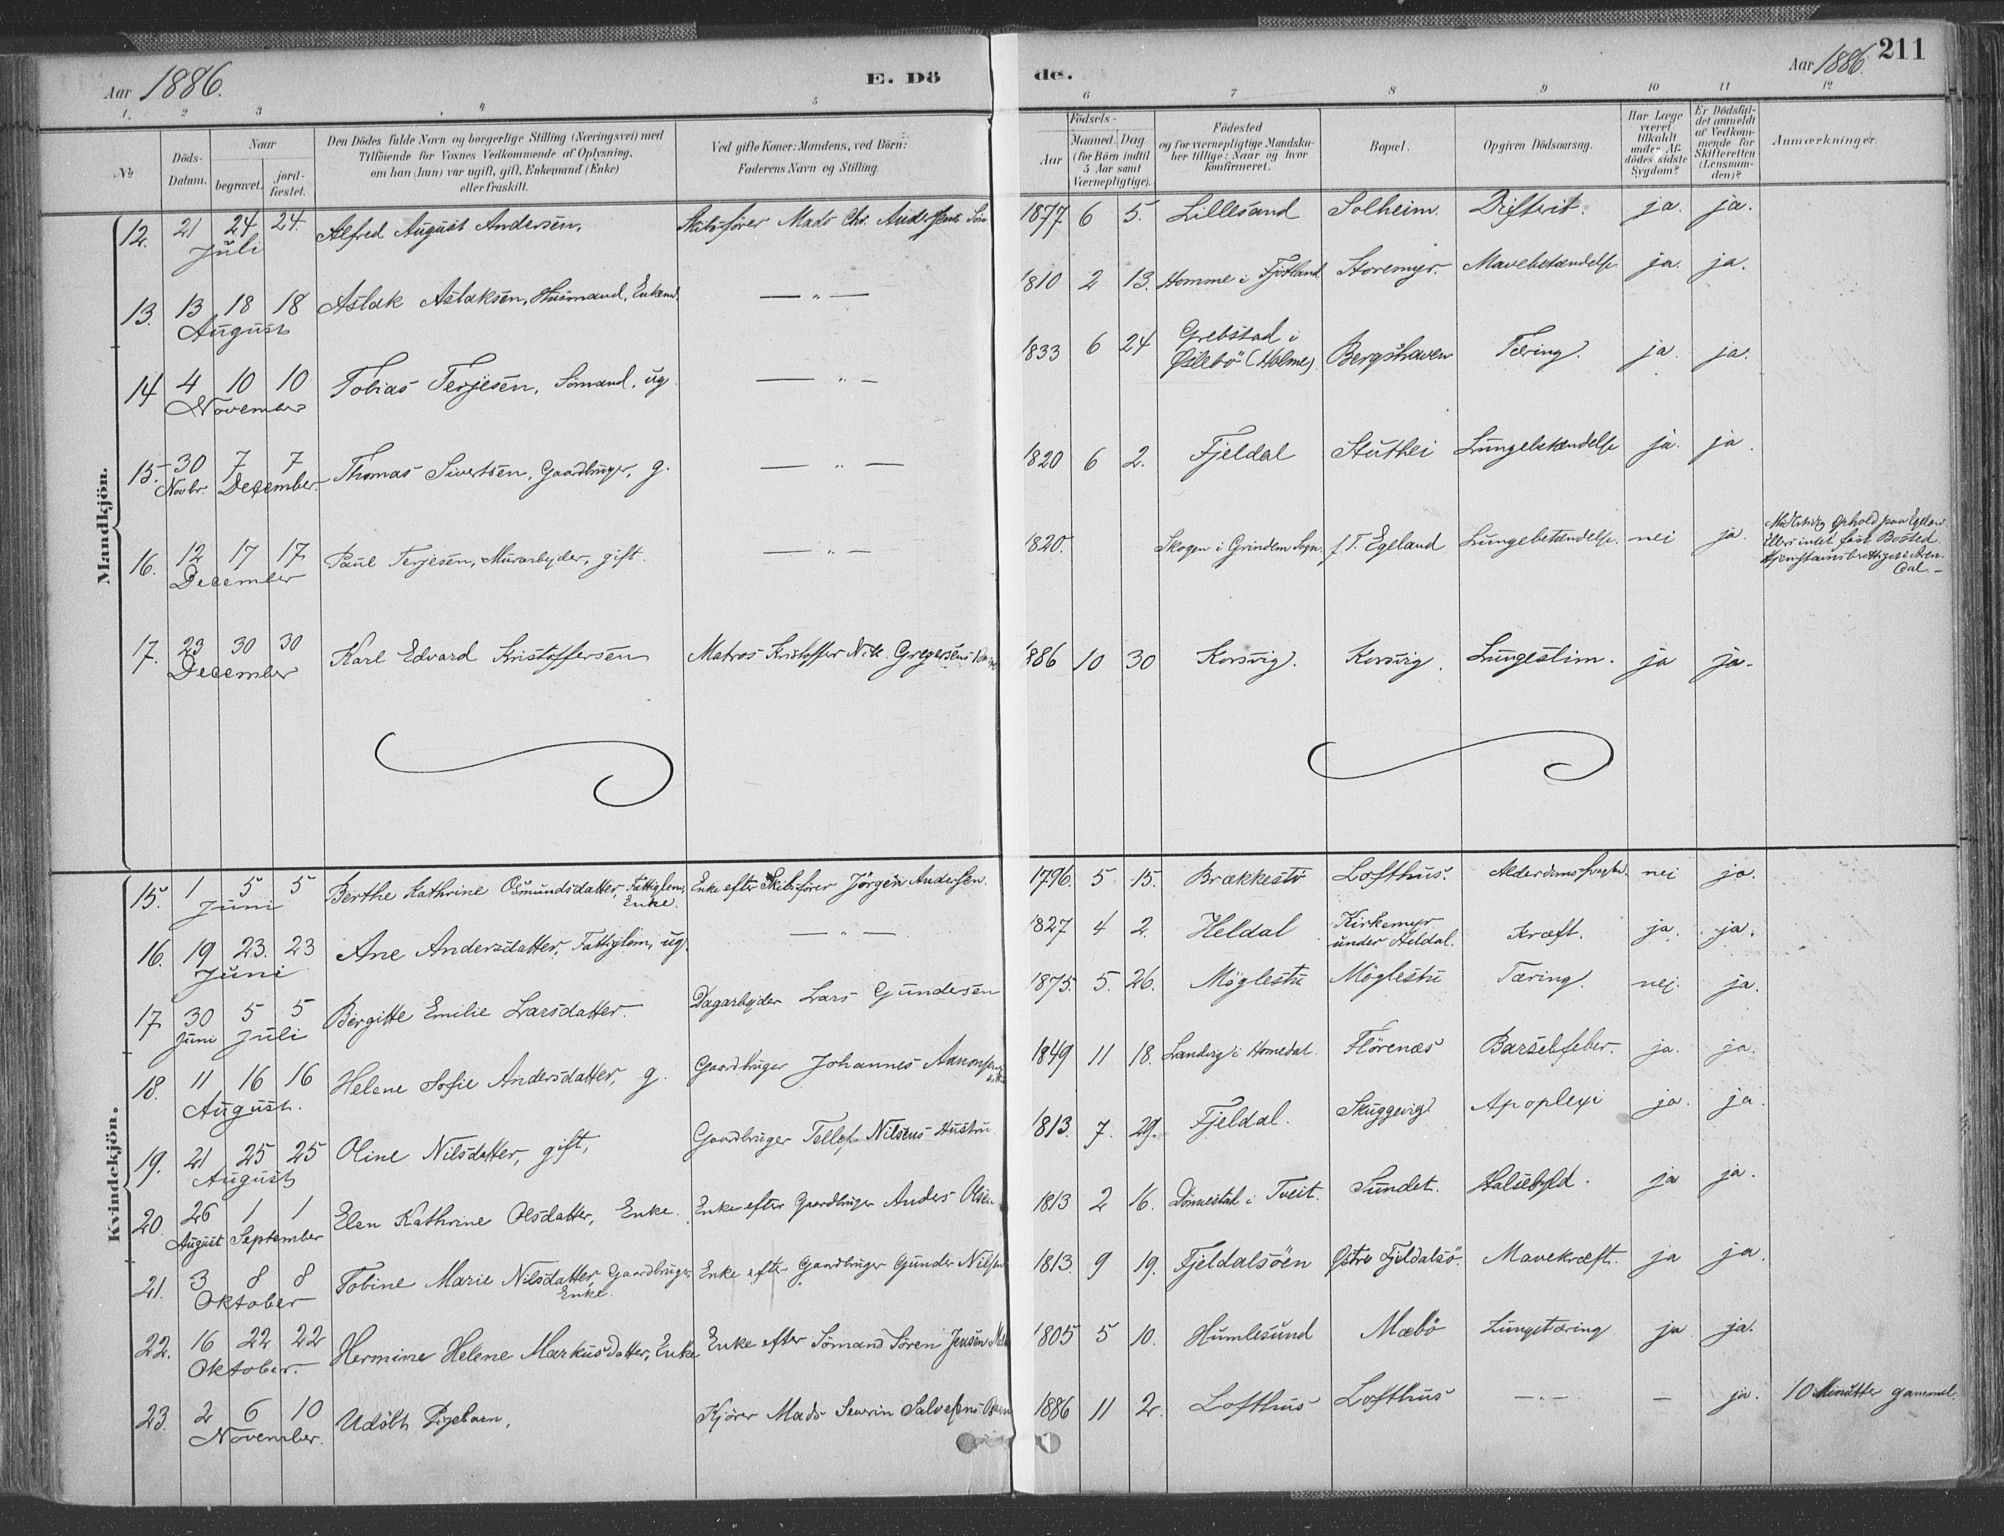 Aar 1886. E. Dö de. Aar 1886. 211
1. 2 3 4 5 6 7 8 9 10 11 12
№ Döds-Datum. Naar begravet. jordfæstet. Den Dödes fulde Navn og borgerlige Stilling (Næringsvei) med Tilföiende for Voxnes Vedkommende af Oplysning, om han (hun) var ugift, gift, Enkemand (Enke) eller fraskilt. Ved gifte Koner: Mandens, ved Börn: Faderens Navn og Stilling. Födsels- Aar Maaned. Dag (for Börn indtil 5 Aar samt Værnepligtige). Födested og for værnepligtige Mandskaber tillige: Naar og hvor konfirmeret. Bopæl. Opgiven Dödsaarsag. Har Læge været tilkaldt under Afdödes sidste Sygdom? Er Dödsfaldet anmeldt af Vedkommende for Skifteretten (Lensmanden)? Anmærkninger.
Mandkjön.
12. 21 24 24. Juli Alfred August Andersen, Skibsförer Mads Chr. Anderssens Sön 1877. 6 5. Lillesand Solheim. Difterit. ja. ja.
13. 13 18 18 August Aslak Aslaksen, Husmand, Enkemd. — " — 1810 2 13. Homme i Fjotland Storemyr. Mavebetændelse ja. ja.
14 4 10 10 November Tobias Terjesen, Sömand, ug. — " — 1833 6 24 Grebstad i Öslebö (Holme) Bergshaven Tæring. ja. ja.
15. 30 Novbr. 7 7 December. Thomas Sivertsen, Gaardbruger, g. — " — 1820 6 2. Fjeldal Stuthei Lungebetændelse ja. ja
16. 12 17 17 December Paul Terjesen, Murarbejder, gift. — " — 1820. Skogen i Grindem Sogn. f.T. Egeland Lungebetændelse. nei ja. Midlertidig Ophold paa Egeland.
Ellers intet fast Bosted.
Hjemstavnsberettiget i Aren-
dal.—
17. 23 30 30 December Karl Edvard Kristoffersen Matros Kristoffer Nik. Gregersens 1886 10 30 Korsvig. Korsvig. Lungeslim. ja ja.
Kvindekjön.
15. 1 5 5 Juni Berthe Kathrine Osmundsdatter, Fattiglem, Enke. Enke efter Skibsförer Jörgen Andersen. 1796. 5 15. Brækkestö Lofthus. Alderdomssvaghed. nei ja.
16. 19 23. 23 Juni Ane Andersdatter, Fattiglem, ug. — " — 1827 4 2. Heldal Kirkemyr under Heldal. Kræft. ja. ja.
17. 30 Juni 5 5 Juli Birgitte Emilie Larsdatter. Dagarbejder Lars Gundersen 1875. 5. 26. Möglestu Möglestu Tæring. nej. ja.
18. 11 16 16 August. Helene Sofie Andersdatter, g. Gaardbruger Johannes Aanonsens 1849 11 18. Landvig i Homedal Flörenæs Barselfeber. ja. ja.
19. 21 25 25 August Oline Nilsdatter, gift, Gaardbruger Tellef Nilsens Hustru 1813. 7. 29. Fjeldal. Skuggevig Apoplexi ja. ja.
20. 26 August 1 1 September Elen Kathrine Olsdatter, Enke. Enke efter Gaardbruger Anders Olsen 1813 2 16. Dönnestad i Tveit. Sundet. Halsebyld. ja ja.
21. 3 8 8 Oktober Tobine Marie Nilsdatter, Gaardbruger Enke. Enke efter Gaardbruger Gunder Nilsen 1813. 9 19. Fjeldalsöen Östre Fjeldalsö. Mavekræft. ja ja.
22. 16 22 22 Oktober. Hermine Helene Markusdatter, Enke Enke efter Sömand Sören Jensen 1805 5 10. Humlesund Mæbö Lungetæring ja ja.
23. 2 6 10 November. Udöbt Pigebarn, Kjörer Mads Severin Salvesens Barn 1886 11 2. Lofthus Lofthus — " — — ja. 10 Minutter gammel.